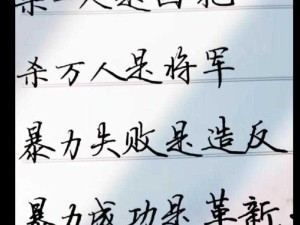 杀一人是
杀万人是将军
暴力失败是造反
暴力成功是革新.